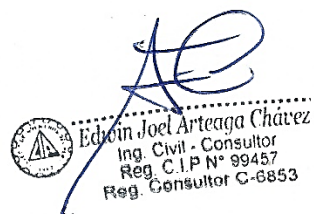 Edwin Joel Arteaga Chávez
Ing. Civil - Consultor
Reg. C.I.P N° 99457
Reg. Consultor C-6853